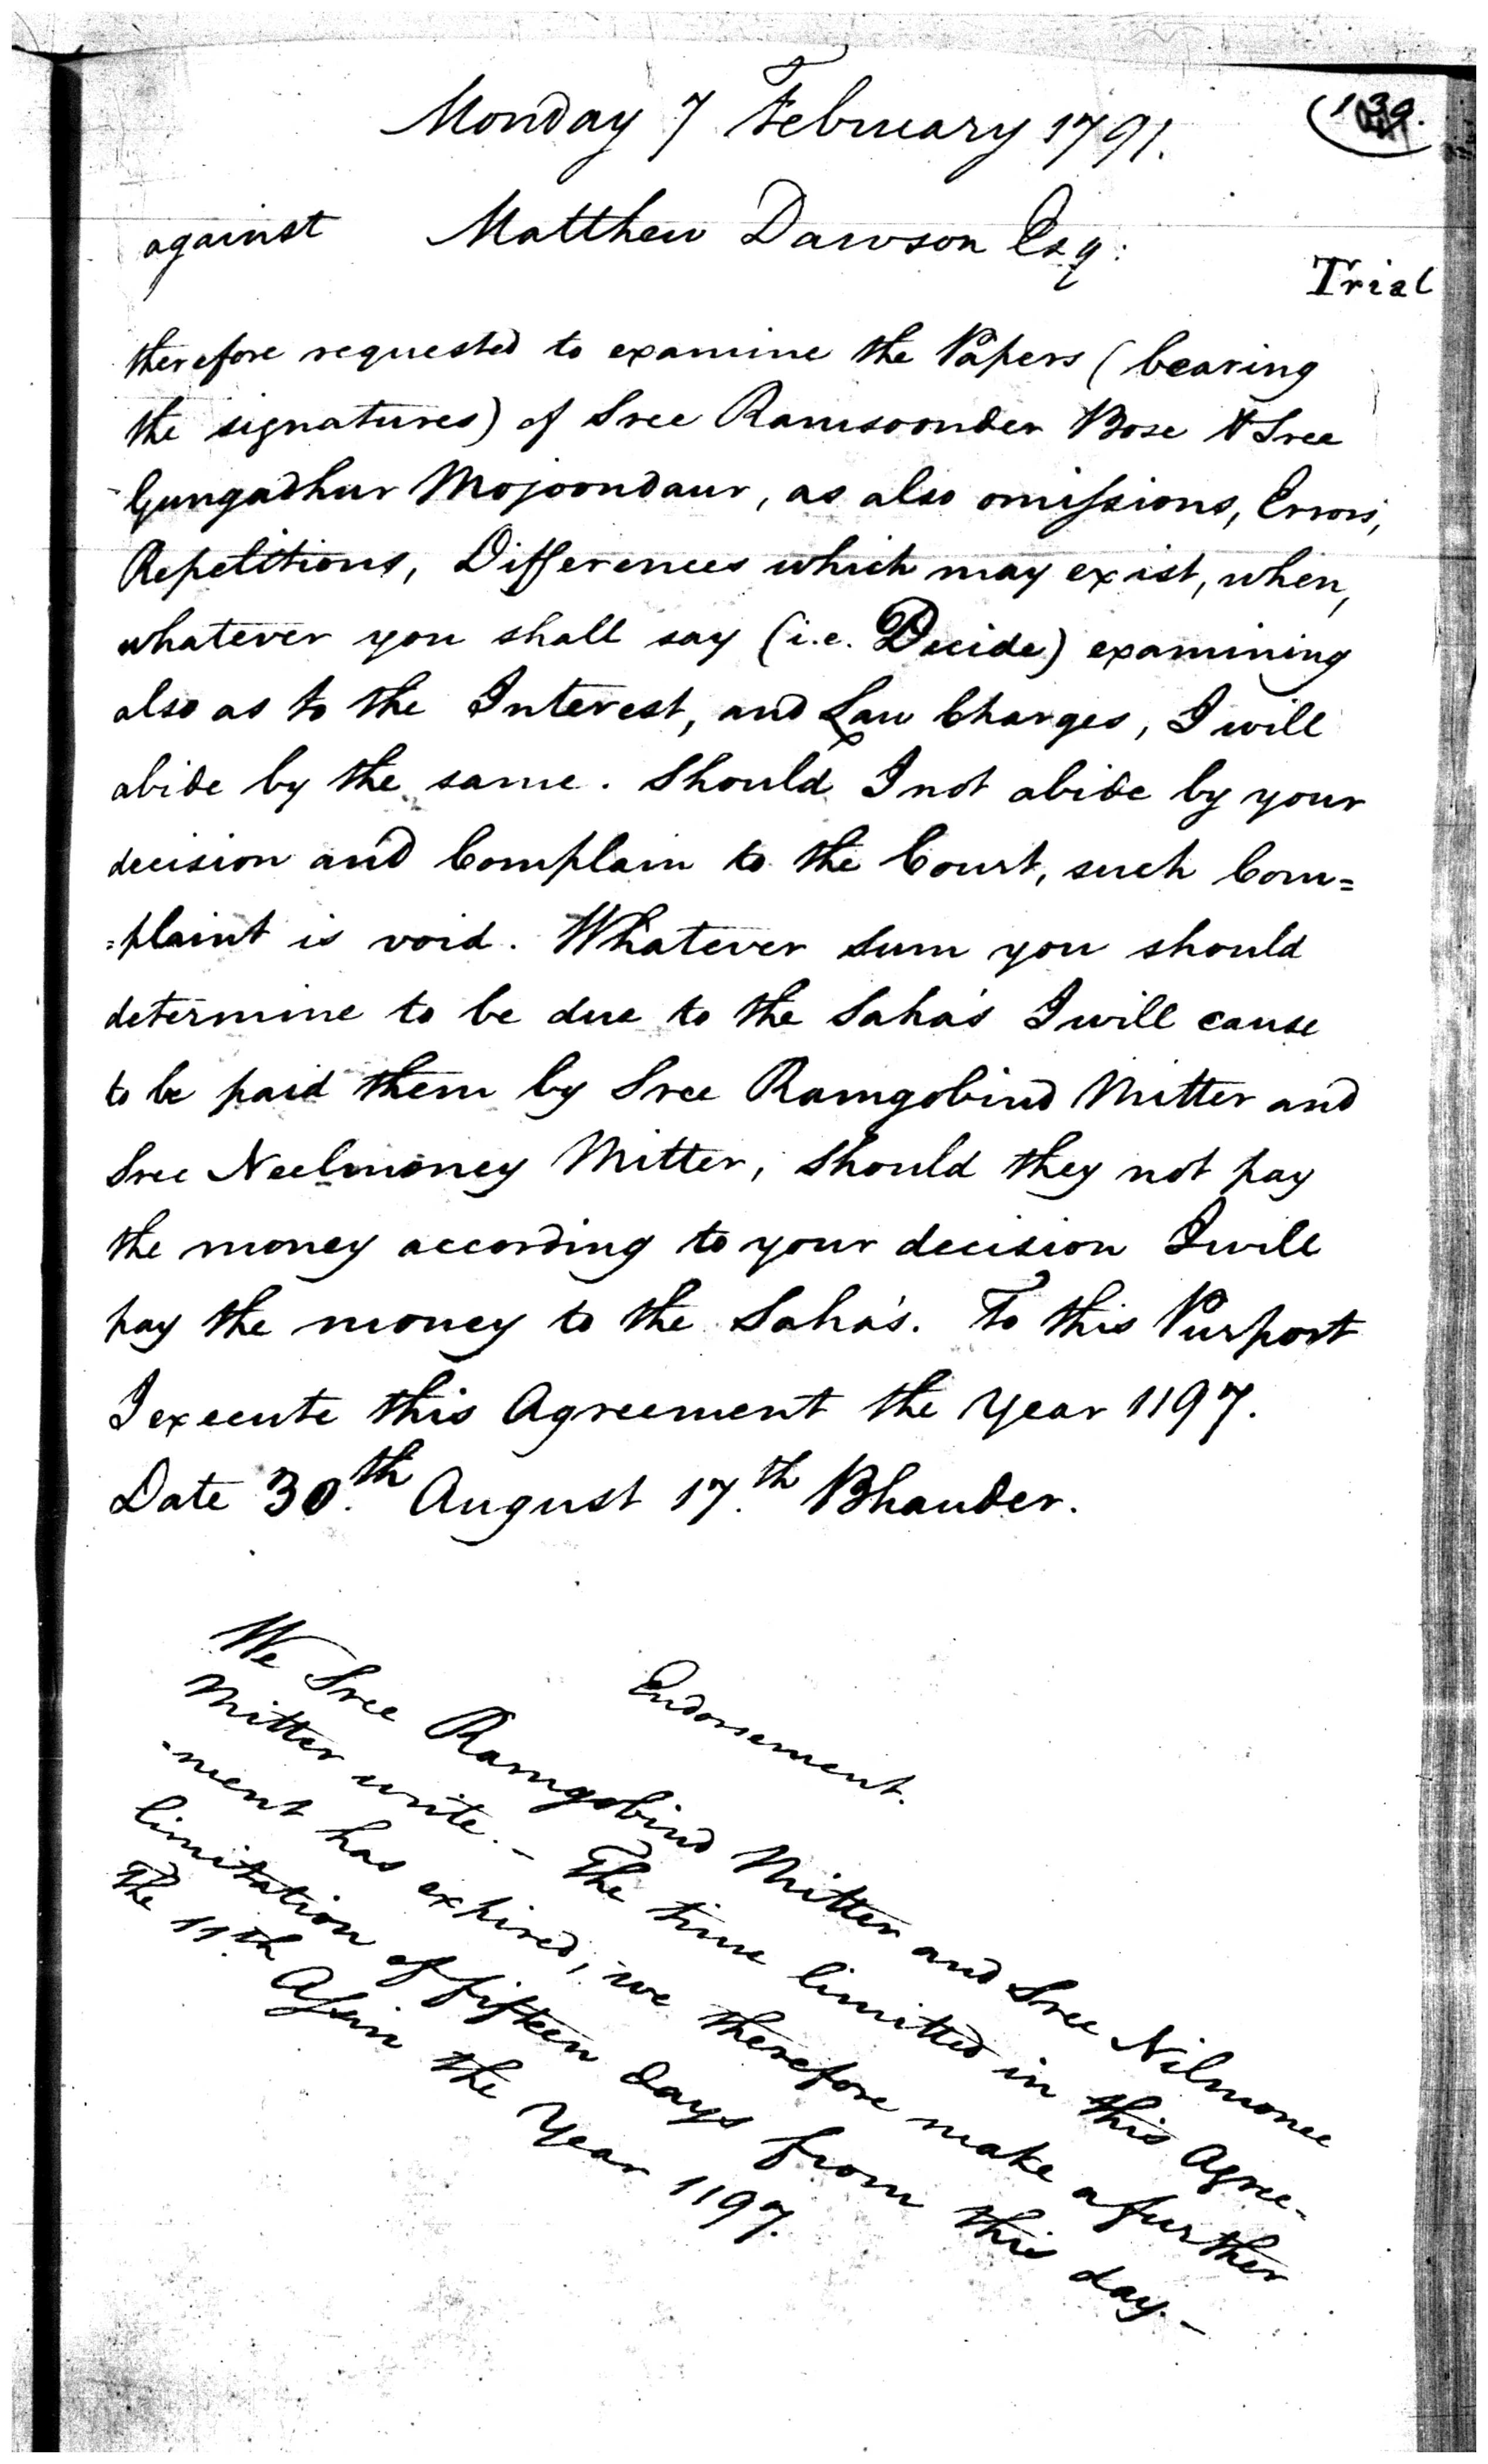 Monday 7 February 1791.
139.
against Matthew Dawson Esq:
Trial
therefore requested to examine the Papers (bearing
the signatures) of Sree Ramsoonder Bose & Sree
Gungadhur Mojoondaur, as also omissions, Errors,
Repetitions, Differences which may exist, when,
whatever you shall say (i.e. Decide) examining
also as to the Interest, and Law Charges, I will
abide by the same. Should I not abide by your
decision and Complain to the Court, such Com=
=plaint is void. Whatever Sum you should
determine to be due to the Saha's I will cause
to be paid them by Sree Ramgobind Mitter and
Sree Neelmoney Mitter, should they not pay
the money according to your decision I will
pay the money to the Saha's. To this Purport
I execute this Agreement the Year 1197.
Date 30.th August 17.th Bhauder.
Endorsement.
We Sree Ramgobind Mitter and Sree Nilmonee
Mitter write. - The time limitted in this Agree-
-ment has expired, we therefore make a further
limitation of fifteen days from this day. -
The 11.th Assin the Year 1197.